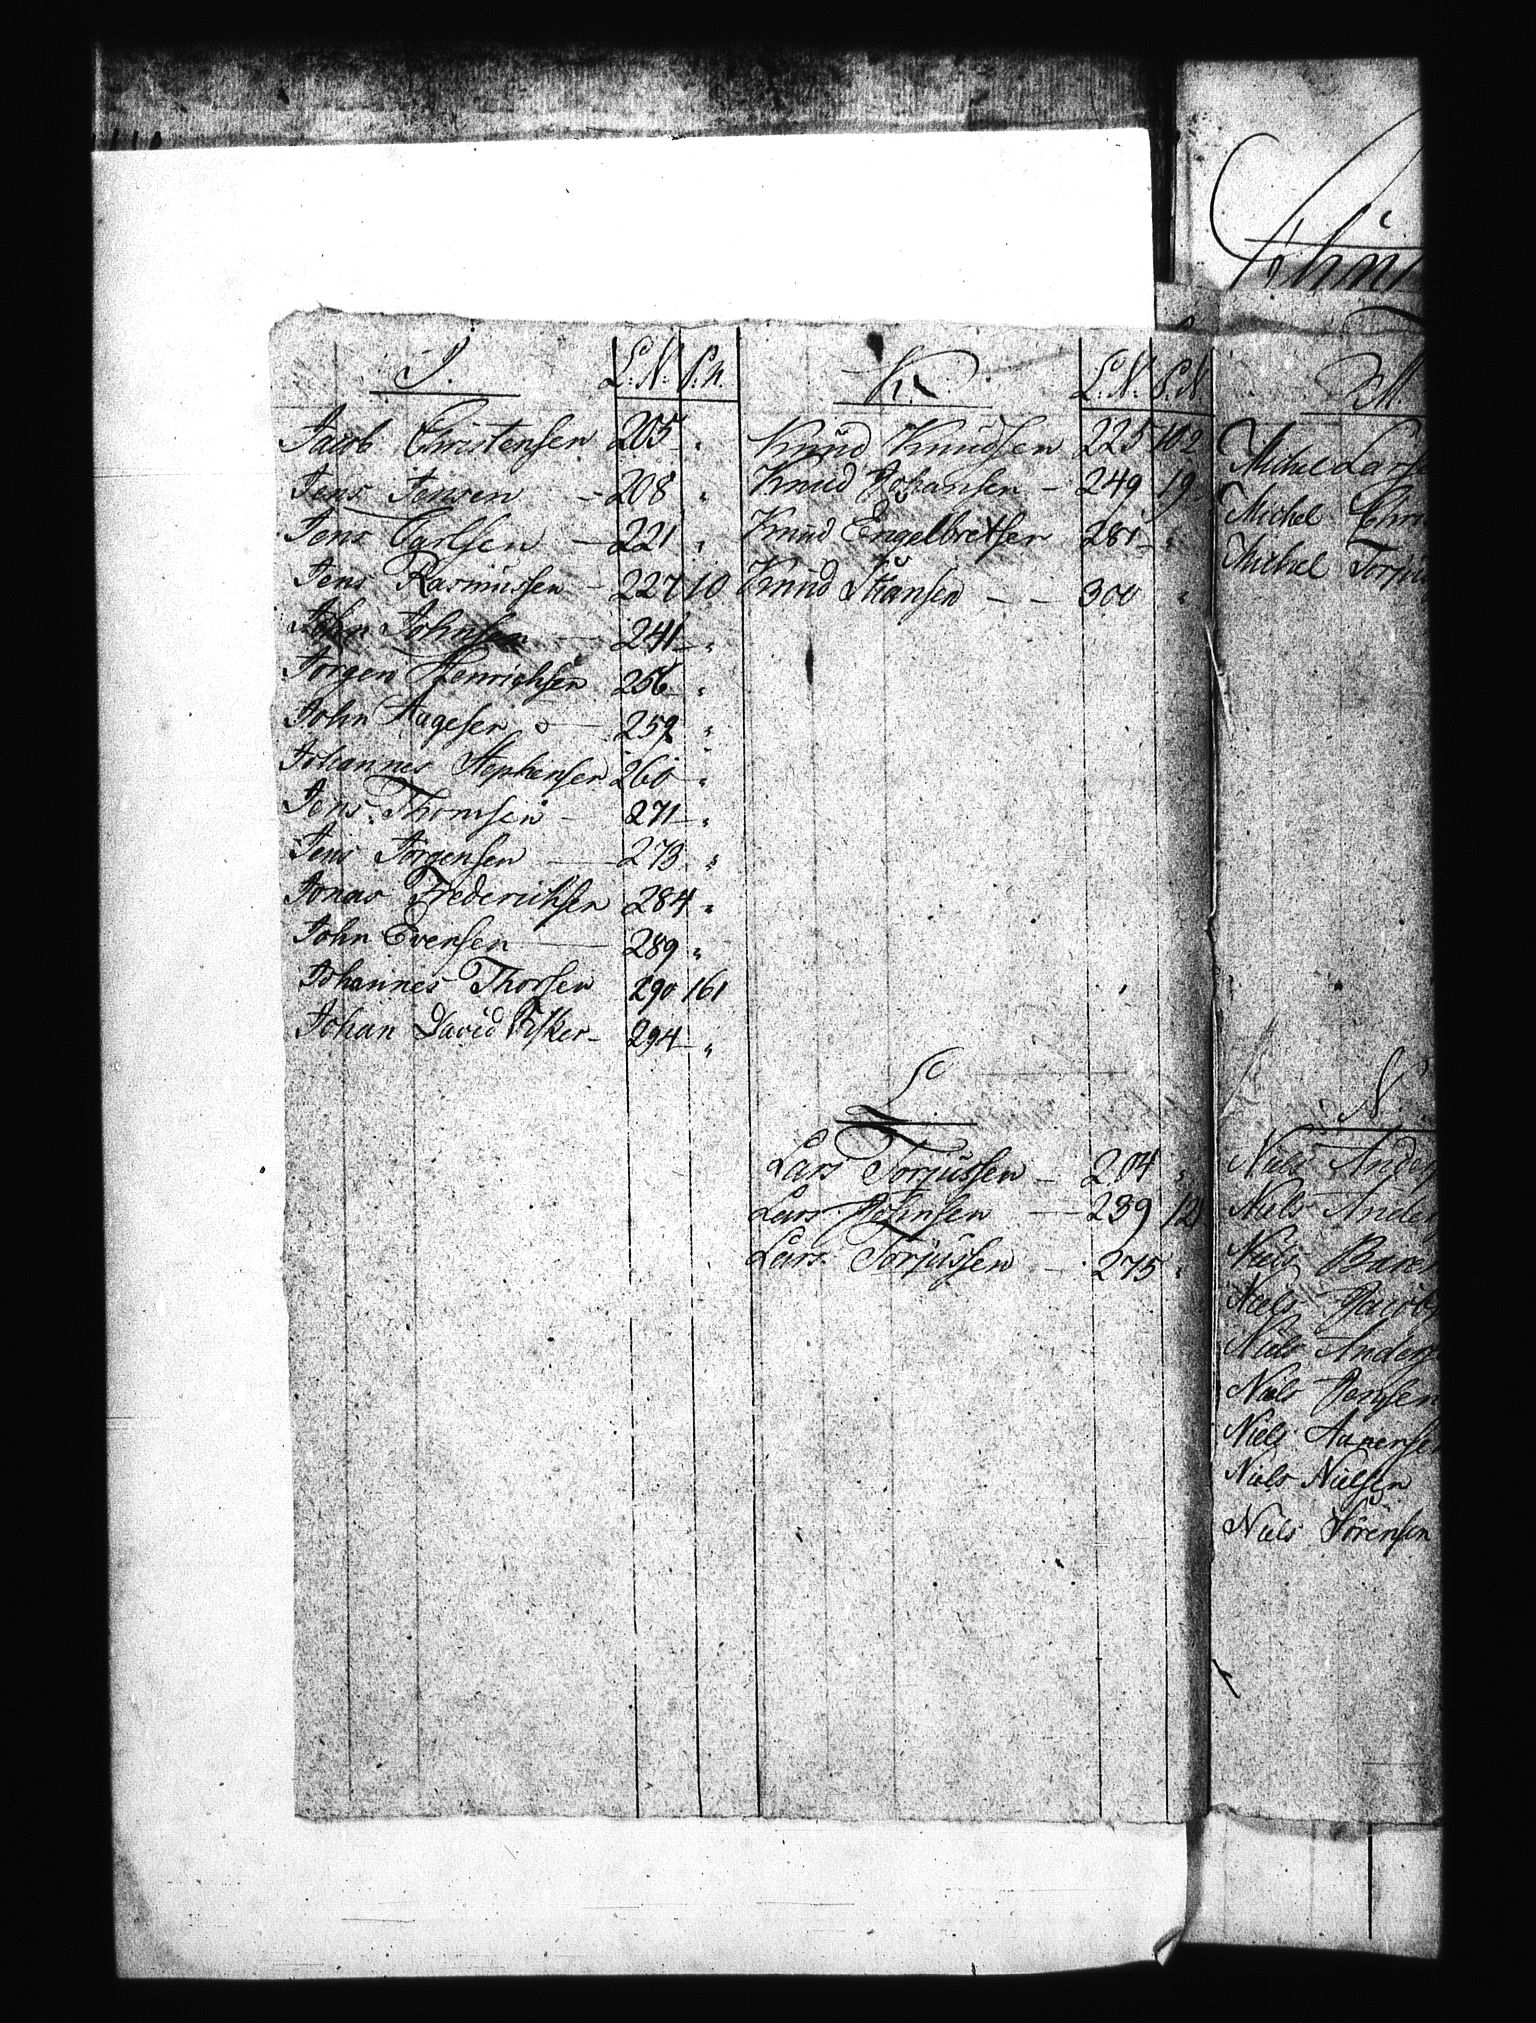 J. L: N: S. N.
Jacob Christensen 205 "
Jens Jensen - 208 "
Jens Carlsen - 221 "
Jens Rasmussen - 227 10
John Johnsen - 241 "
Jörgen Henrichsen 256 "
John Aagesen - 259 "
Johannes Stephensen 260 "
Jens Thomsen - 271 "
Jens Jörgensen - 273 "
Jonas Frederichsen 284 "
John Evensen - 289 "
Johannes Thorsen 290 161
Johan David Fisker - 294 "
K. L: N: S. N
Knud Knudsen 225 102
Knud Johansen - 249 19
Knud Engelbretsen 281 "
Knud Stiansen - - 300 "
L
Lars Torjussen - 204 "
Lars Johnsen - 239 121
Lars Torjussen - 275 "
M.
Michel Larse
Michel Chri
Michel Torju
N.
Niels Anders
Niels Anders
Niels
Niels Jacobs
Niels Anders
Niels Jensen
Niels
Niels Nielsen
Niels Sörensen